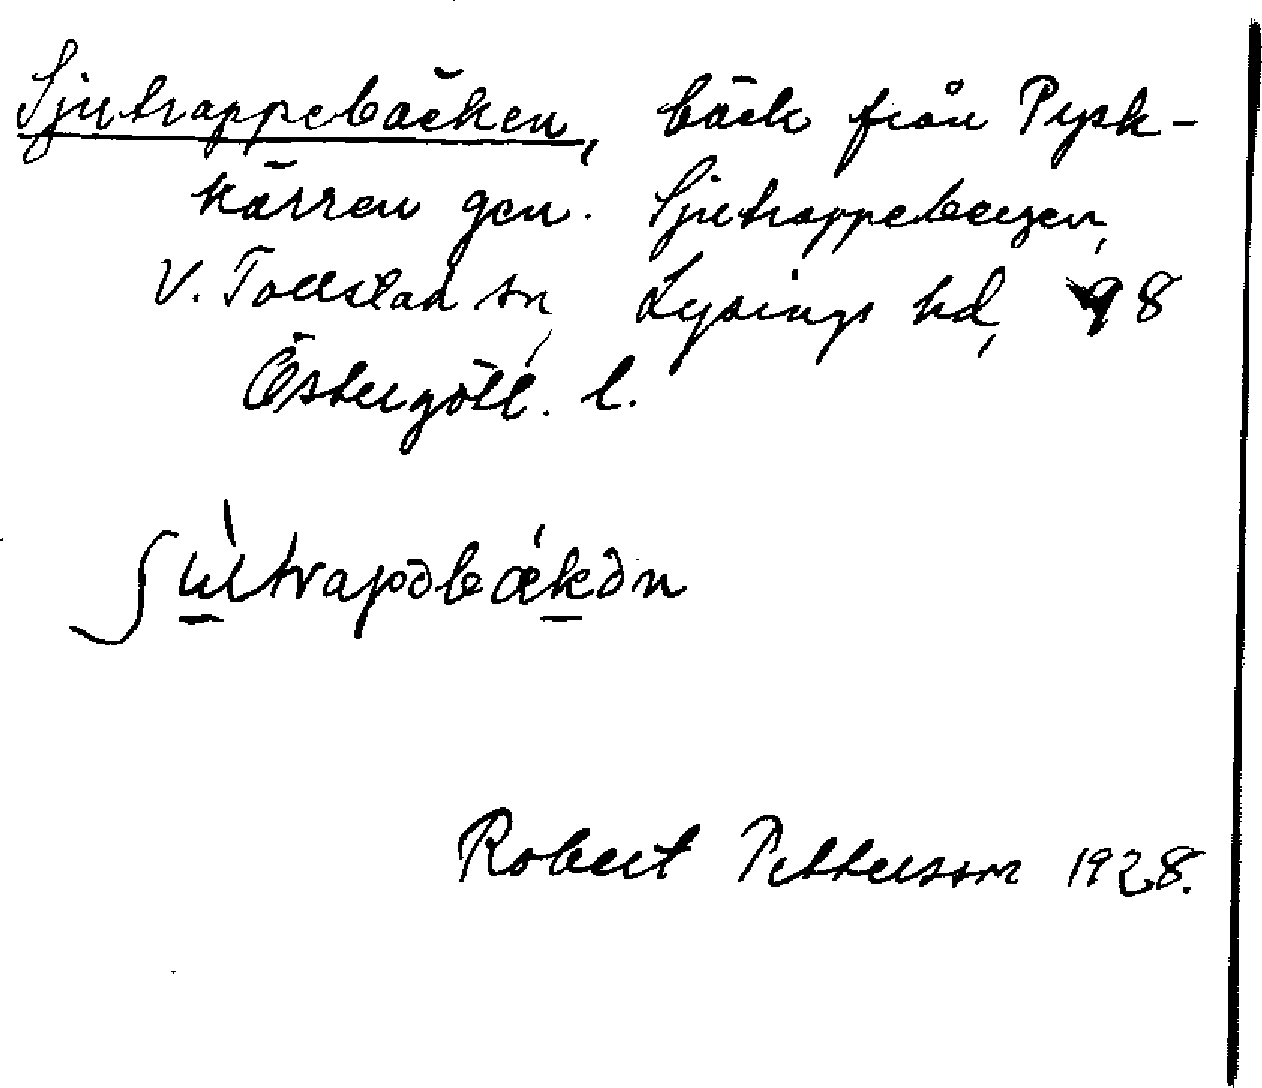 Sjutrappebäcken, bäck från Pysk-
kärren gen. Sjutrappebergen,
V. Tollstad sn, Lysings hd, 98
Östergötl. l.
ʃùtrapəbǽkən
Robert Pettersson 1928.